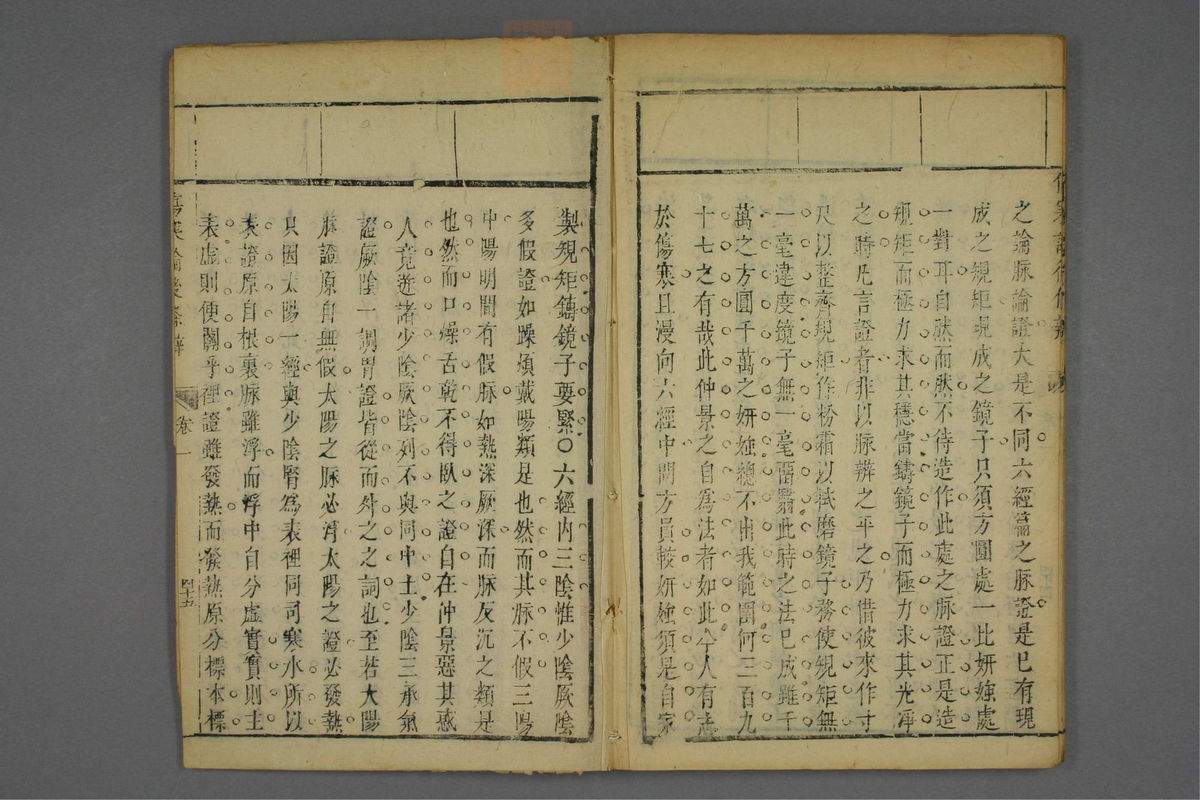 之論脉論證大是不同六經篇之脉證是已有現
成之規矩現成之鏡子只須方圓處一比妍媸處
一對耳自然而然不待造作此處之脉證正是造
規矩而極力求其穩當鑄鏡子而極力求其光淨
之時凡言證者非以脉辨之平之乃借彼來作寸
尺以整齊規矩作粉霜以拭磨鏡子務使規矩無
一毫違度鏡子無一毫畱翳此時之法已成雖千
萬之方圓千萬之妍媸總不出我範圍何三百九
十七之有哉此仲景之自爲法者如此今人有志
於傷寒且漫向六經中問方員較妍媸須是自家
製規矩鑄鏡子要緊○六經內三陰惟少陰厥陰
多假證如躁煩戴陽類是也然而其脉不假三陽
中陽明間有假脉如熱深厥深而脉反沉之類是
也然而口燥舌乾不得臥之證自在仲景惡其惑
人竟遊諸少陰厥陰列不與同中土少陰三承氣
證厥陰一調胃證皆從而外之之詞也至若太陽
脉證原自無假太陽之脉必浮太陽之證必發熱
只因太陽一經與少陰腎爲表裡同司寒水所以
表證原自根裏脉雖浮而浮中自分虛實實則主
表虛則便關乎裡證雖發熱而發熱原分標本標
傷寒論後條辨
卷一
四十五